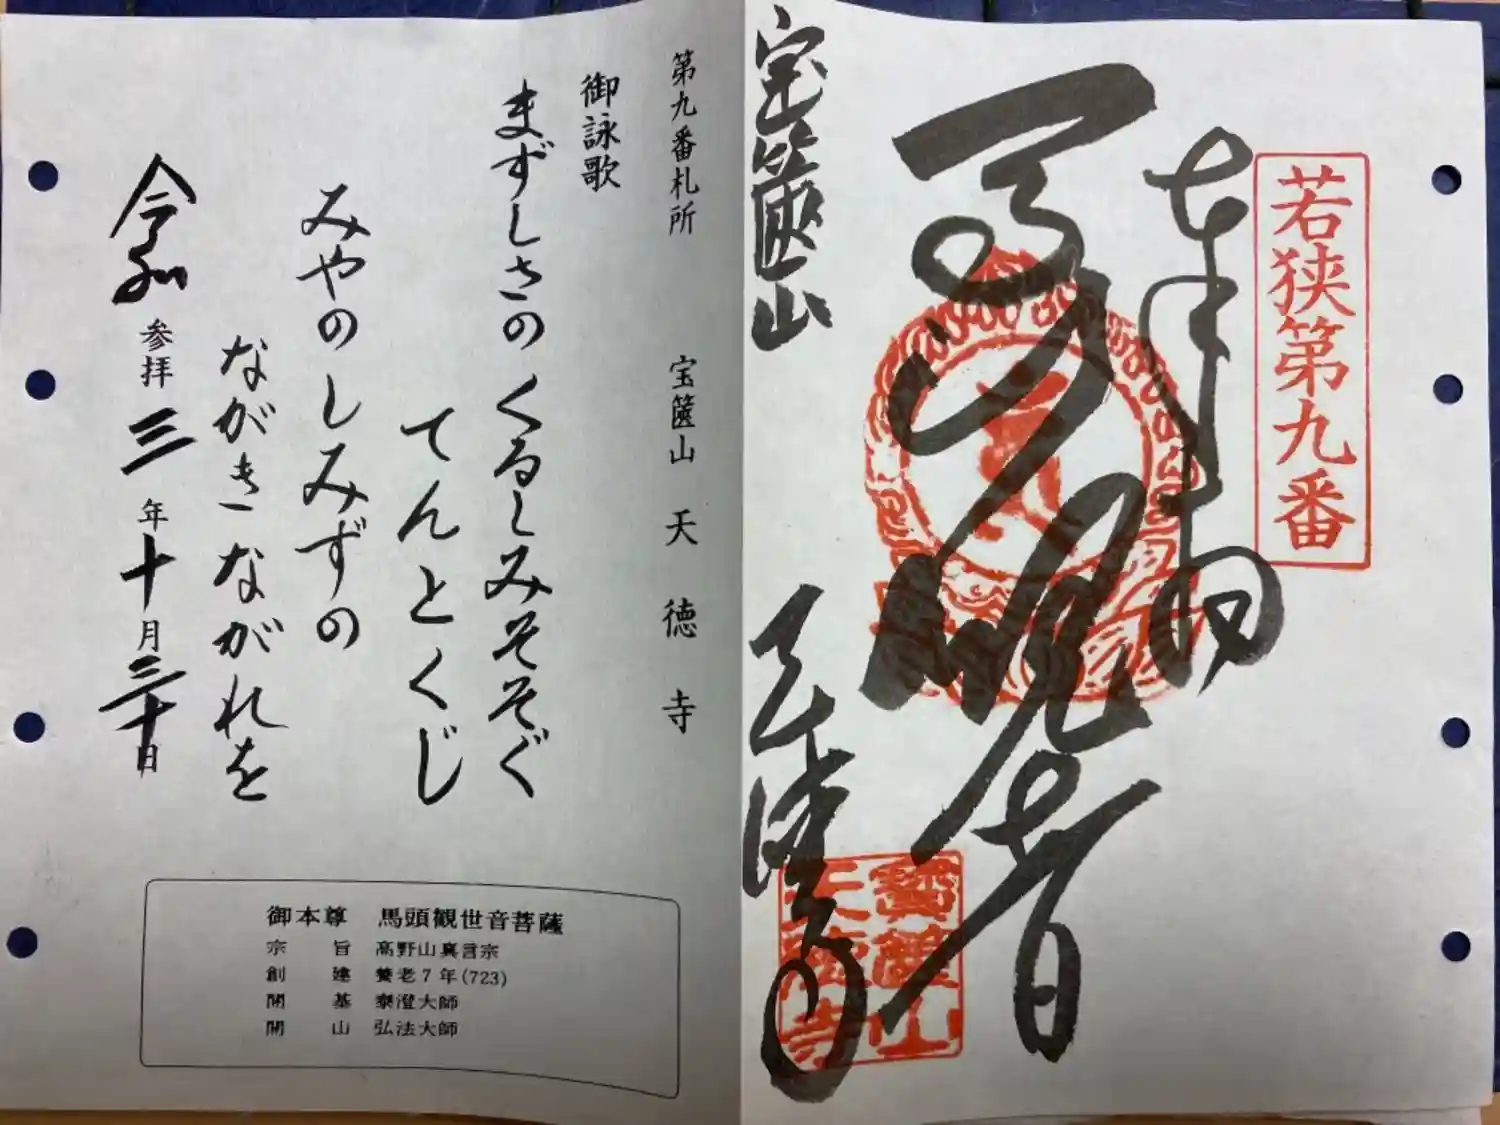 若狭第九番
奉拝
馬頭観音
宝篋山
天徳寺
第九番札所　宝篋山　天徳寺
御詠歌
まずしさの　くるしみそそぐ
てんとくじ
みやのしみずの
ながきながれを
令和参拝三年十月三十日
御本尊　馬頭観世音菩薩
宗旨　高野山真言宗
創建　養老7年(723)
開基　泰澄大師
開山　弘法大師